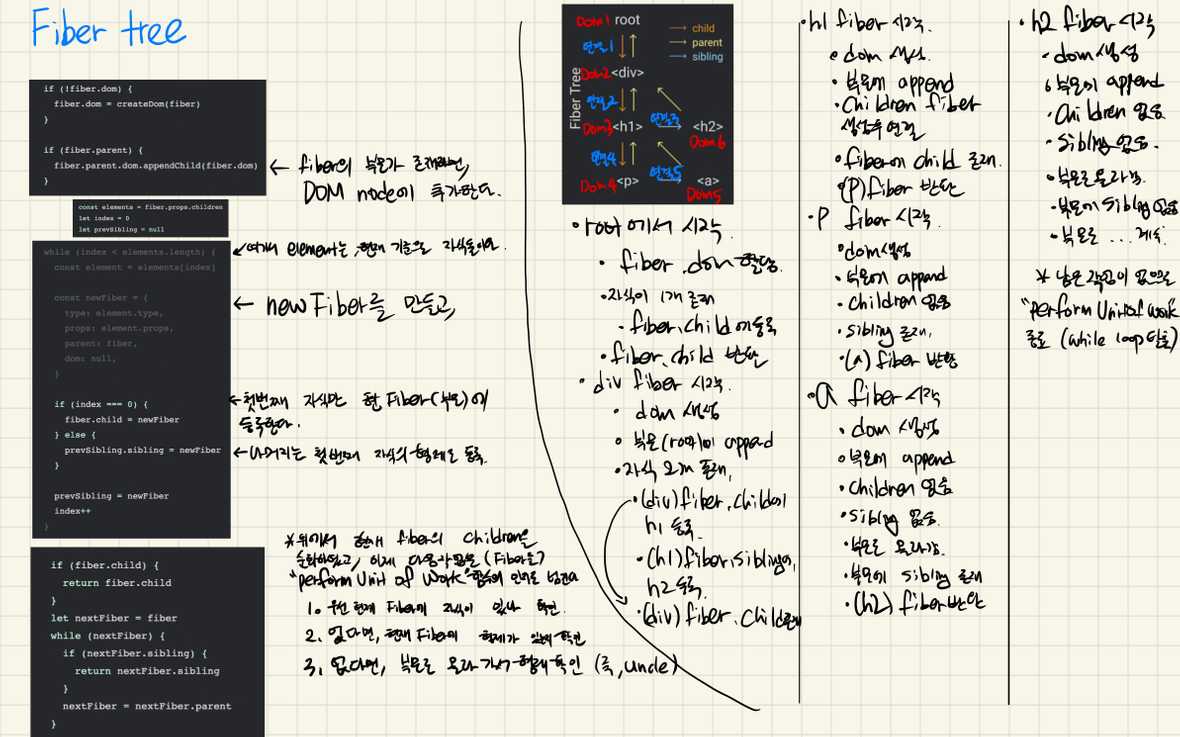 Fiber tree
if (!fiber.dom) {
fiber.dom = createDom(fiber)
}
if (fiber.parent) {
fiber.parent.dom.appendChild(fiber.dom)
}
← fiber의 부모가 존재하면,
DOM node에 추가한다.
const elements = fiber.props.children
let index = 0
let prevSibling = null
while (index < elements.length) {
const element = elements[index]
const newFiber = {
type: element.type,
props: element.props,
parent: fiber,
dom: null,
}
if (index === 0) {
fiber.child = newFiber
} else {
prevSibling.sibling = newFiber
}
prevSibling = newFiber
index++
}
↙여기서 element는, 현재 기준으로 자식들이다.
← new Fiber를 만들고,
←첫번째 자식만 현 Fiber(부모)에
등록한다.
←나머지는 첫번째 자식의 형제로 등록.
if (fiber.child) {
return fiber.child
}
let nextFiber = fiber
while (nextFiber) {
if (nextFiber.sibling) {
return nextFiber.sibling
}
nextFiber = nextFiber.parent
}
*위에서 현재 fiber의 children을
순회하였고, 이제 다음 작업을 (Fiber을)
"perform Unit of Work" 함수의 인자로 넘긴다
1. 우선 현재 Fiber에 자식이 있나 확인.
2. 없다면, 현재 Fiber의 형제가 있는지 확인
3. 없다면, 부모로 올라가서 형제 확인 (즉, uncle)
Fiber Tree
Dom1 root
연결1
Dom2 <div>
연결2
Dom3 <h1>
연결3
<h2>
Dom6
연결4
Dom4 <p>
연결5
<a>
Dom5
→ child
→ parent
→ sibling
• root에서 시작.
• fiber.dom 할당.
• 자식이 1개 존재
• fiber.child에 등록
• fiber.child 반환
• div fiber 시작.
• dom 생성
• 부모(root)에 append
• 자식 2개 존재,
• (div)fiber.child에
h1 등록.
• (h1)fiber.sibling에,
h2 등록.
• (div)fiber.children존재
• h1 fiber 시작.
• dom 생성.
• 부모에 append
• Children fiber
생성후 연결
• fiber에 child 존재.
• (P)fiber 반환
• P fiber 시작.
• dom생성
• 부모에 append
• children 없음
• sibling 존재,
• (a) fiber 반환
• a fiber 시작
• dom 생성
• 부모에 append
• Children 없음
• sibling 없음.
• 부모로 올라감.
• 부모에 sibling 존재
• (h2) fiber반환
• h2 fiber 시작
• dom 생성
• 부모에 append
• Children 없음
• sibling 없음.
• 부모로 올라감.
• 부모에 sibling 없음
• 부모로 ... 계속.
* 남은 작업이 없으므로
"perform Unit of work"
종료 (while loop 탈출)